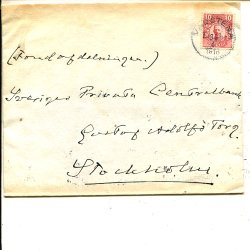 10
(Fondafdelningen.)
Sveriges Privata Centralbank
Gustaf Adolfs Torg
Stockholm